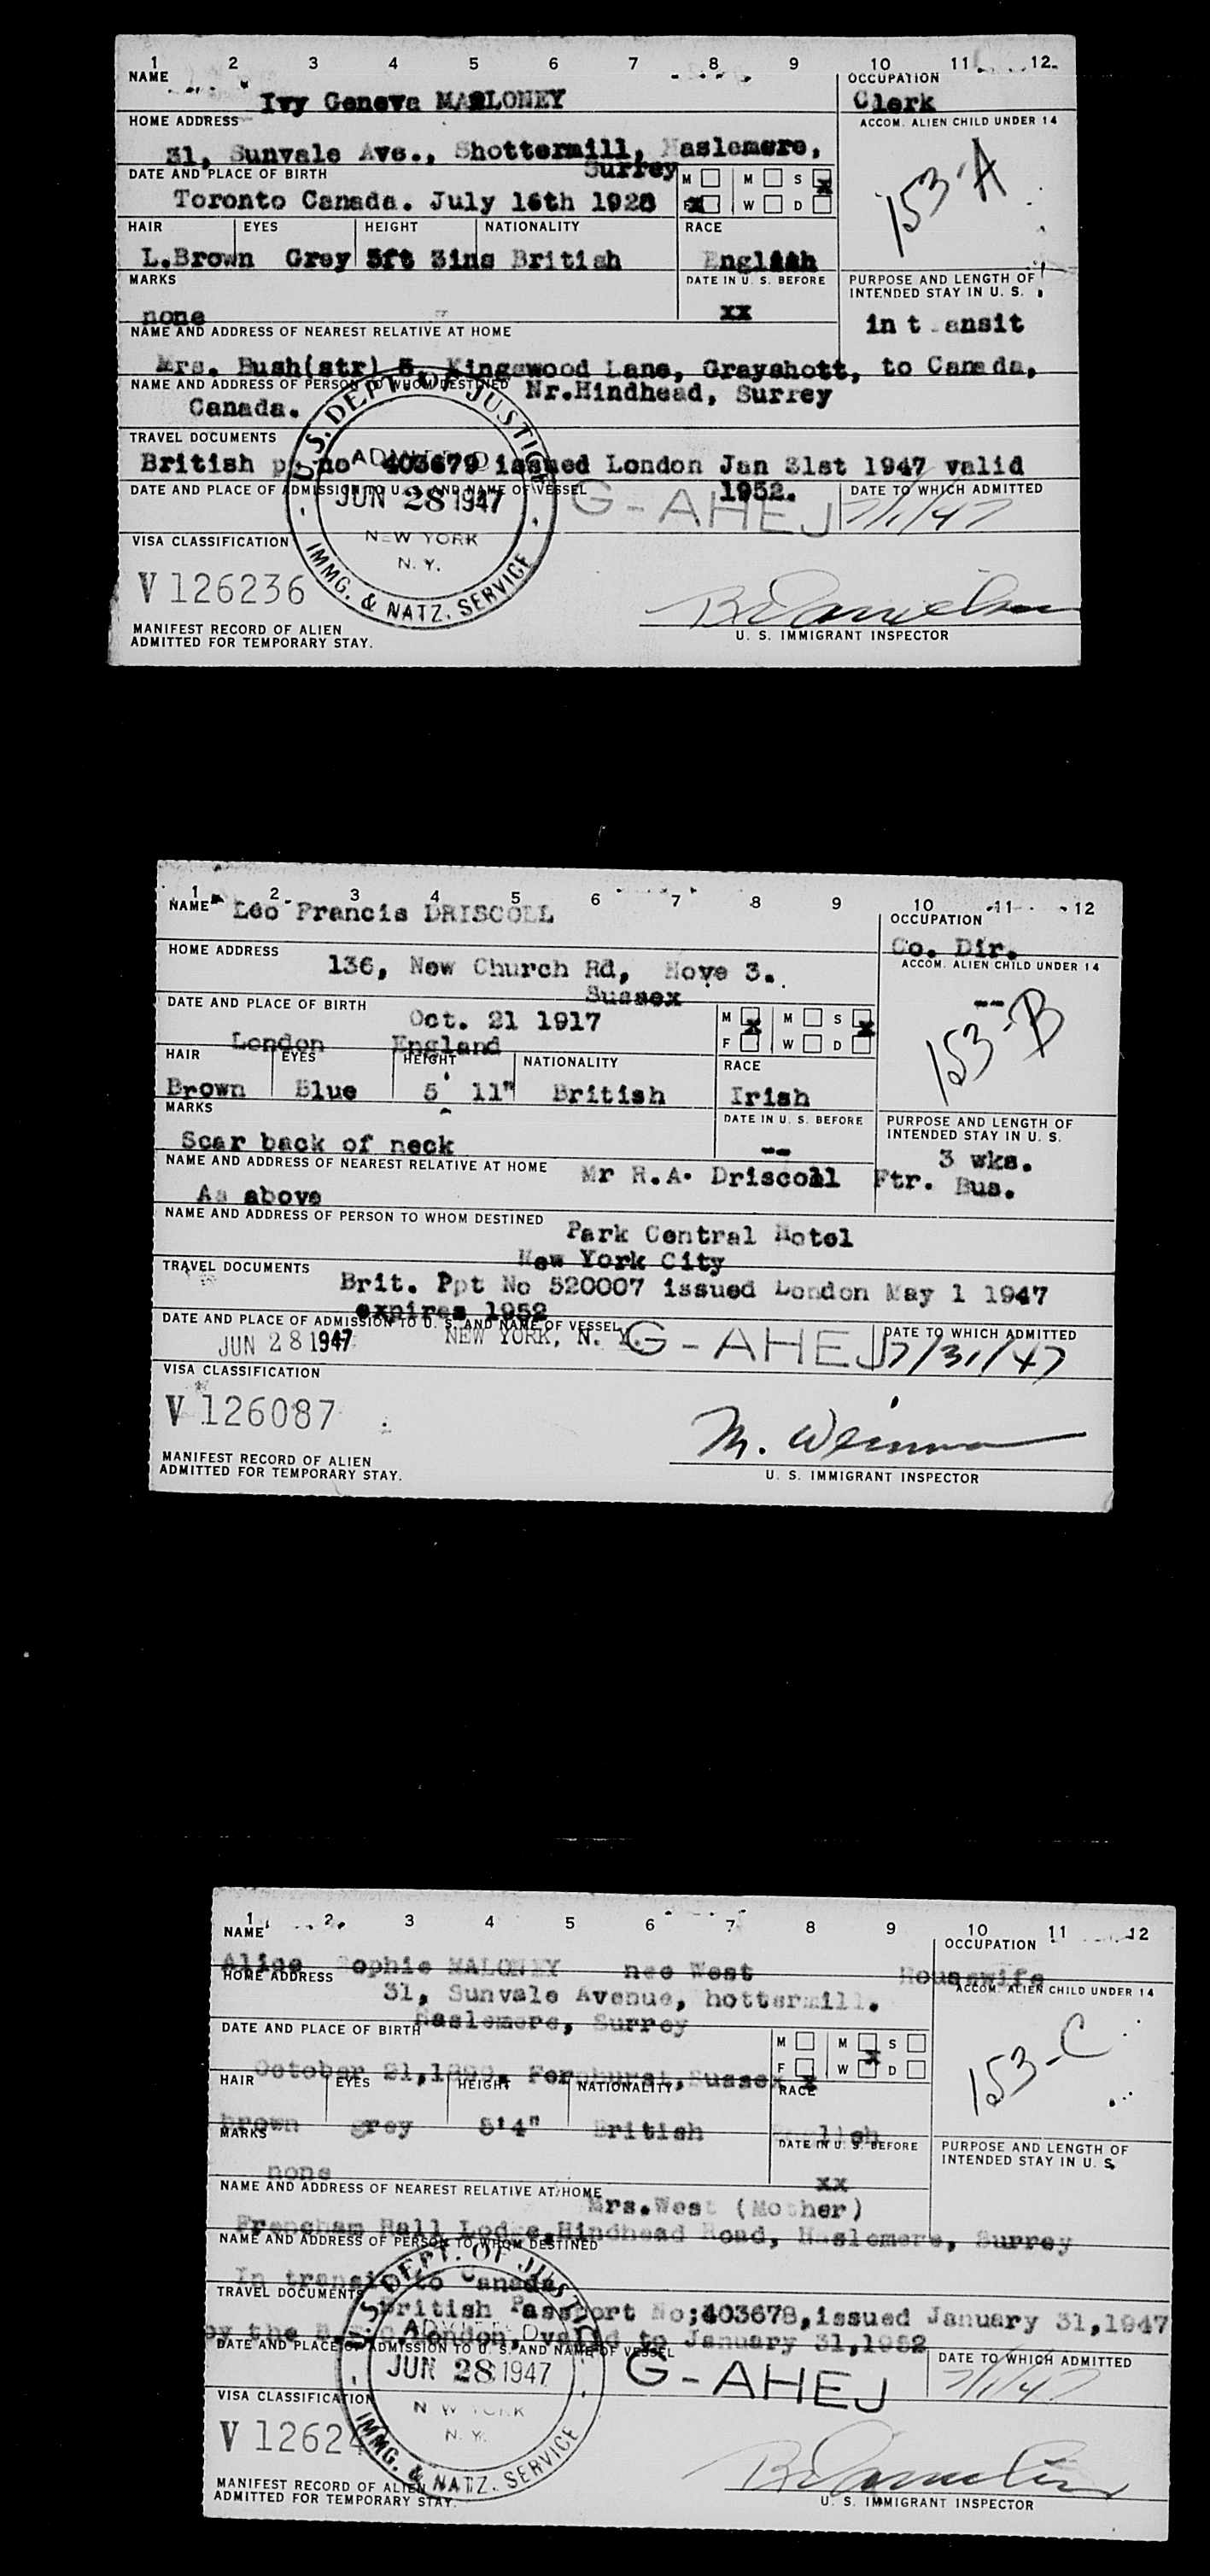 1 2 3 4 5 6 7 8 9 10 11 12
NAME OCCUPATION
Ivy Geneva MALONEY Clerk
HOME ADDRESS ACCOM. ALIEN CHILD UNDER 14
31, Sunvale Ave., Shottermill, Haslemere,
Surrey
153-A
DATE AND PLACE OF BIRTH M M S
Toronto Canada. July 16th 1928 F W D
HAIR EYES HEIGHT NATIONALITY RACE
L.Brown Grey 5ft 3ins British English
MARKS DATE IN U. S. BEFORE PURPOSE AND LENGTH OF INTENDED STAY IN U. S.
none xx in t ansit
NAME AND ADDRESS OF NEAREST RELATIVE AT HOME
Mrs. Bush(str) 5, Kingswood Lane, Grayshott, to Canada,
NAME AND ADDRESS OF PERSON TO WHOM DESTINED Nr.Hindhead, Surrey
Canada.
TRAVEL DOCUMENTS
British pp no 403679 issued London Jan 31st 1947 valid
1952.
DATE AND PLACE OF ADMISSION TO U. S. AND NAME OF VESSEL DATE TO WHICH ADMITTED
G-AHEJ 7/1/47
U.S. DEPT. OF JUSTICE
ADMITTED
JUN 28 1947
NEW YORK
N. Y.
IMMG. & NATZ. SERVICE
VISA CLASSIFICATION
V 126236
MANIFEST RECORD OF ALIEN
ADMITTED FOR TEMPORARY STAY.
U. S. IMMIGRANT INSPECTOR
1 2 3 4 5 6 7 8 9 10 11 12
NAME Leo Francis DRISCOLL OCCUPATION
Co. Dir.
HOME ADDRESS ACCOM. ALIEN CHILD UNDER 14
136, New Church Rd, Hove 3.
Sussex
--
153-B
DATE AND PLACE OF BIRTH M M S
Oct. 21 1917 F W D
London England
HAIR EYES HEIGHT NATIONALITY RACE
Brown Blue 5' 11" British Irish
MARKS DATE IN U. S. BEFORE PURPOSE AND LENGTH OF INTENDED STAY IN U. S.
Scar back of neck -- 3 wks.
NAME AND ADDRESS OF NEAREST RELATIVE AT HOME Mr R.A. Driscoll Ftr. Bus.
As above
NAME AND ADDRESS OF PERSON TO WHOM DESTINED Park Central Hotel
New York City
TRAVEL DOCUMENTS
Brit. Ppt No 520007 issued London May 1 1947
expires 1952
DATE AND PLACE OF ADMISSION TO U. S. AND NAME OF VESSEL DATE TO WHICH ADMITTED
JUN 28 1947 NEW YORK, N. Y. G-AHEJ 7/31/47
VISA CLASSIFICATION
V 126087
MANIFEST RECORD OF ALIEN
ADMITTED FOR TEMPORARY STAY.
U. S. IMMIGRANT INSPECTOR
1 2 3 4 5 6 7 8 9 10 11 12
NAME OCCUPATION
Alice Sophie MALONEY nee West Housewife
HOME ADDRESS ACCOM. ALIEN CHILD UNDER 14
31, Sunvale Avenue, hottermill.
Haslemere, Surrey
153-C
DATE AND PLACE OF BIRTH M M S
F W D
October 21, Fernhurst, Sussex
HAIR EYES HEIGHT NATIONALITY RACE
brown grey 5'4" British English
MARKS DATE IN U. S. BEFORE PURPOSE AND LENGTH OF INTENDED STAY IN U. S.
none xx
NAME AND ADDRESS OF NEAREST RELATIVE AT HOME
Mrs.West (Mother)
Frencham Hall Lodge, Hindhead Road, Haslemere, Surrey
NAME AND ADDRESS OF PERSON TO WHOM DESTINED
In transit to Canada
TRAVEL DOCUMENTS
British Passport No;403678, issued January 31,1947
by the London, valid to January 31,1952
DATE AND PLACE OF ADMISSION TO U. S. AND NAME OF VESSEL DATE TO WHICH ADMITTED
G-AHEJ 7/1/47
U.S. DEPT. OF JUSTICE
ADMITTED
JUN 28 1947
NEW YORK
N. Y.
IMMG. & NATZ. SERVICE
VISA CLASSIFICATION
V 12624
MANIFEST RECORD OF ALIEN
ADMITTED FOR TEMPORARY STAY.
U. S. IMMIGRANT INSPECTOR